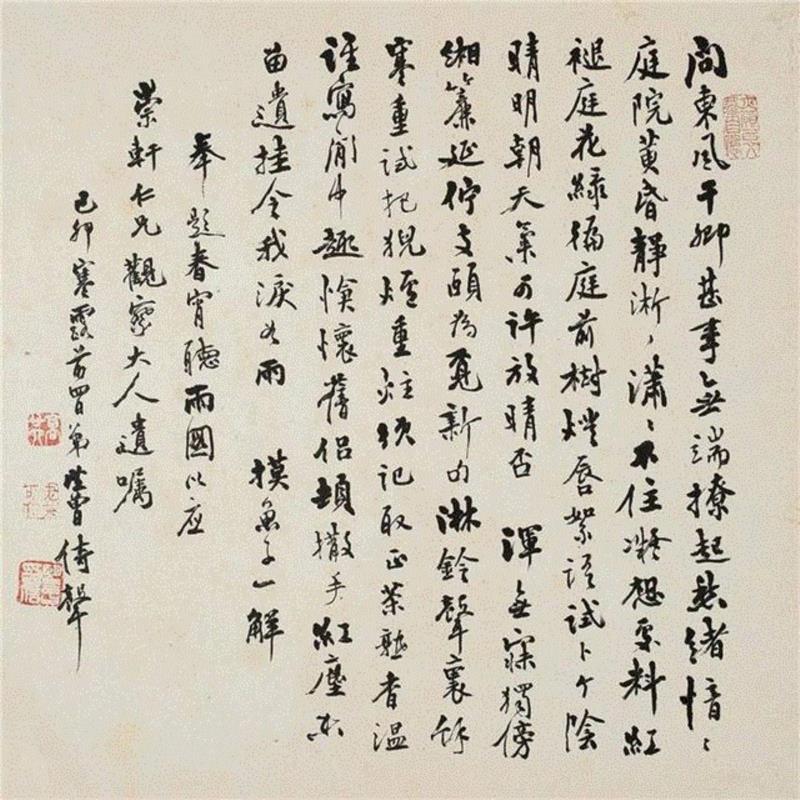 問東風干卿甚事無端撩起愁緒愔〻
庭院黃昏靜淅〻瀟〻不住凝想處料紅
褪庭花綠徧庭前樹燈唇絮語試卜个陰
晴明朝天氣可許放晴否 渾無寐獨傍
緗簾延佇支頤為覓新句淋鈴聲裏
寒重試把猊爐重炷須記取正茶熟香溫
誰寫箇中趣愴懷舊侶頓撒手紅塵
留遺挂令我淚如雨 摸魚子一解
奉題春宵聽雨圖以應
榮軒仁兄觀察大人遺囑
己卯寒露前四日弟曾倚聲